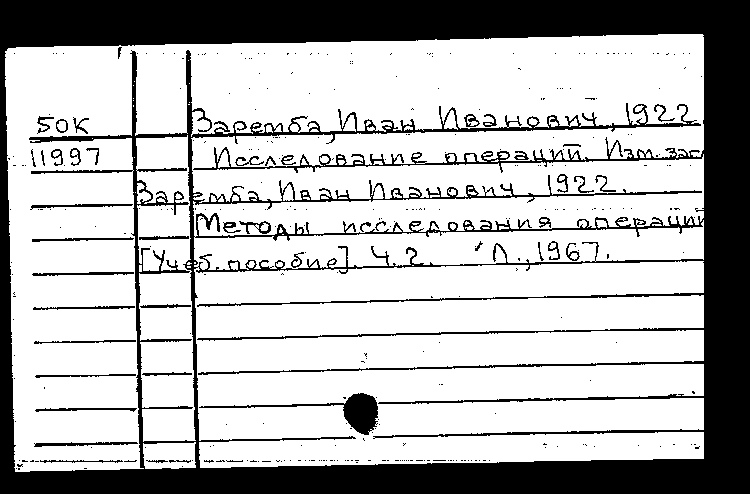 50К Заремба, Иван Иванович, 1922
11997 Исследование операций. Изм. заг
Заремба, Иван Иванович, 1922.
Методы исследования операций
[Учеб. пособие]. Ч. 2. Л., 1967.